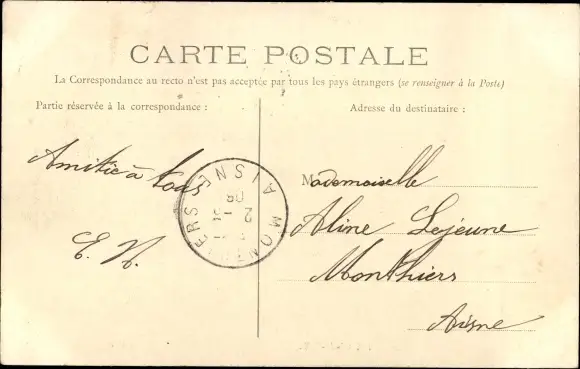 CARTE POSTALE
La Correspondance au recto n'est pas acceptée par tous les pays étrangers (se renseigner à la Poste)
Partie réservée à la correspondance :
Adresse du destinataire :
Amitié à tous
E. N.
MONTHIERS AISNE
08
Mademoiselle
Aline Lejeune
Monthiers
Aisne